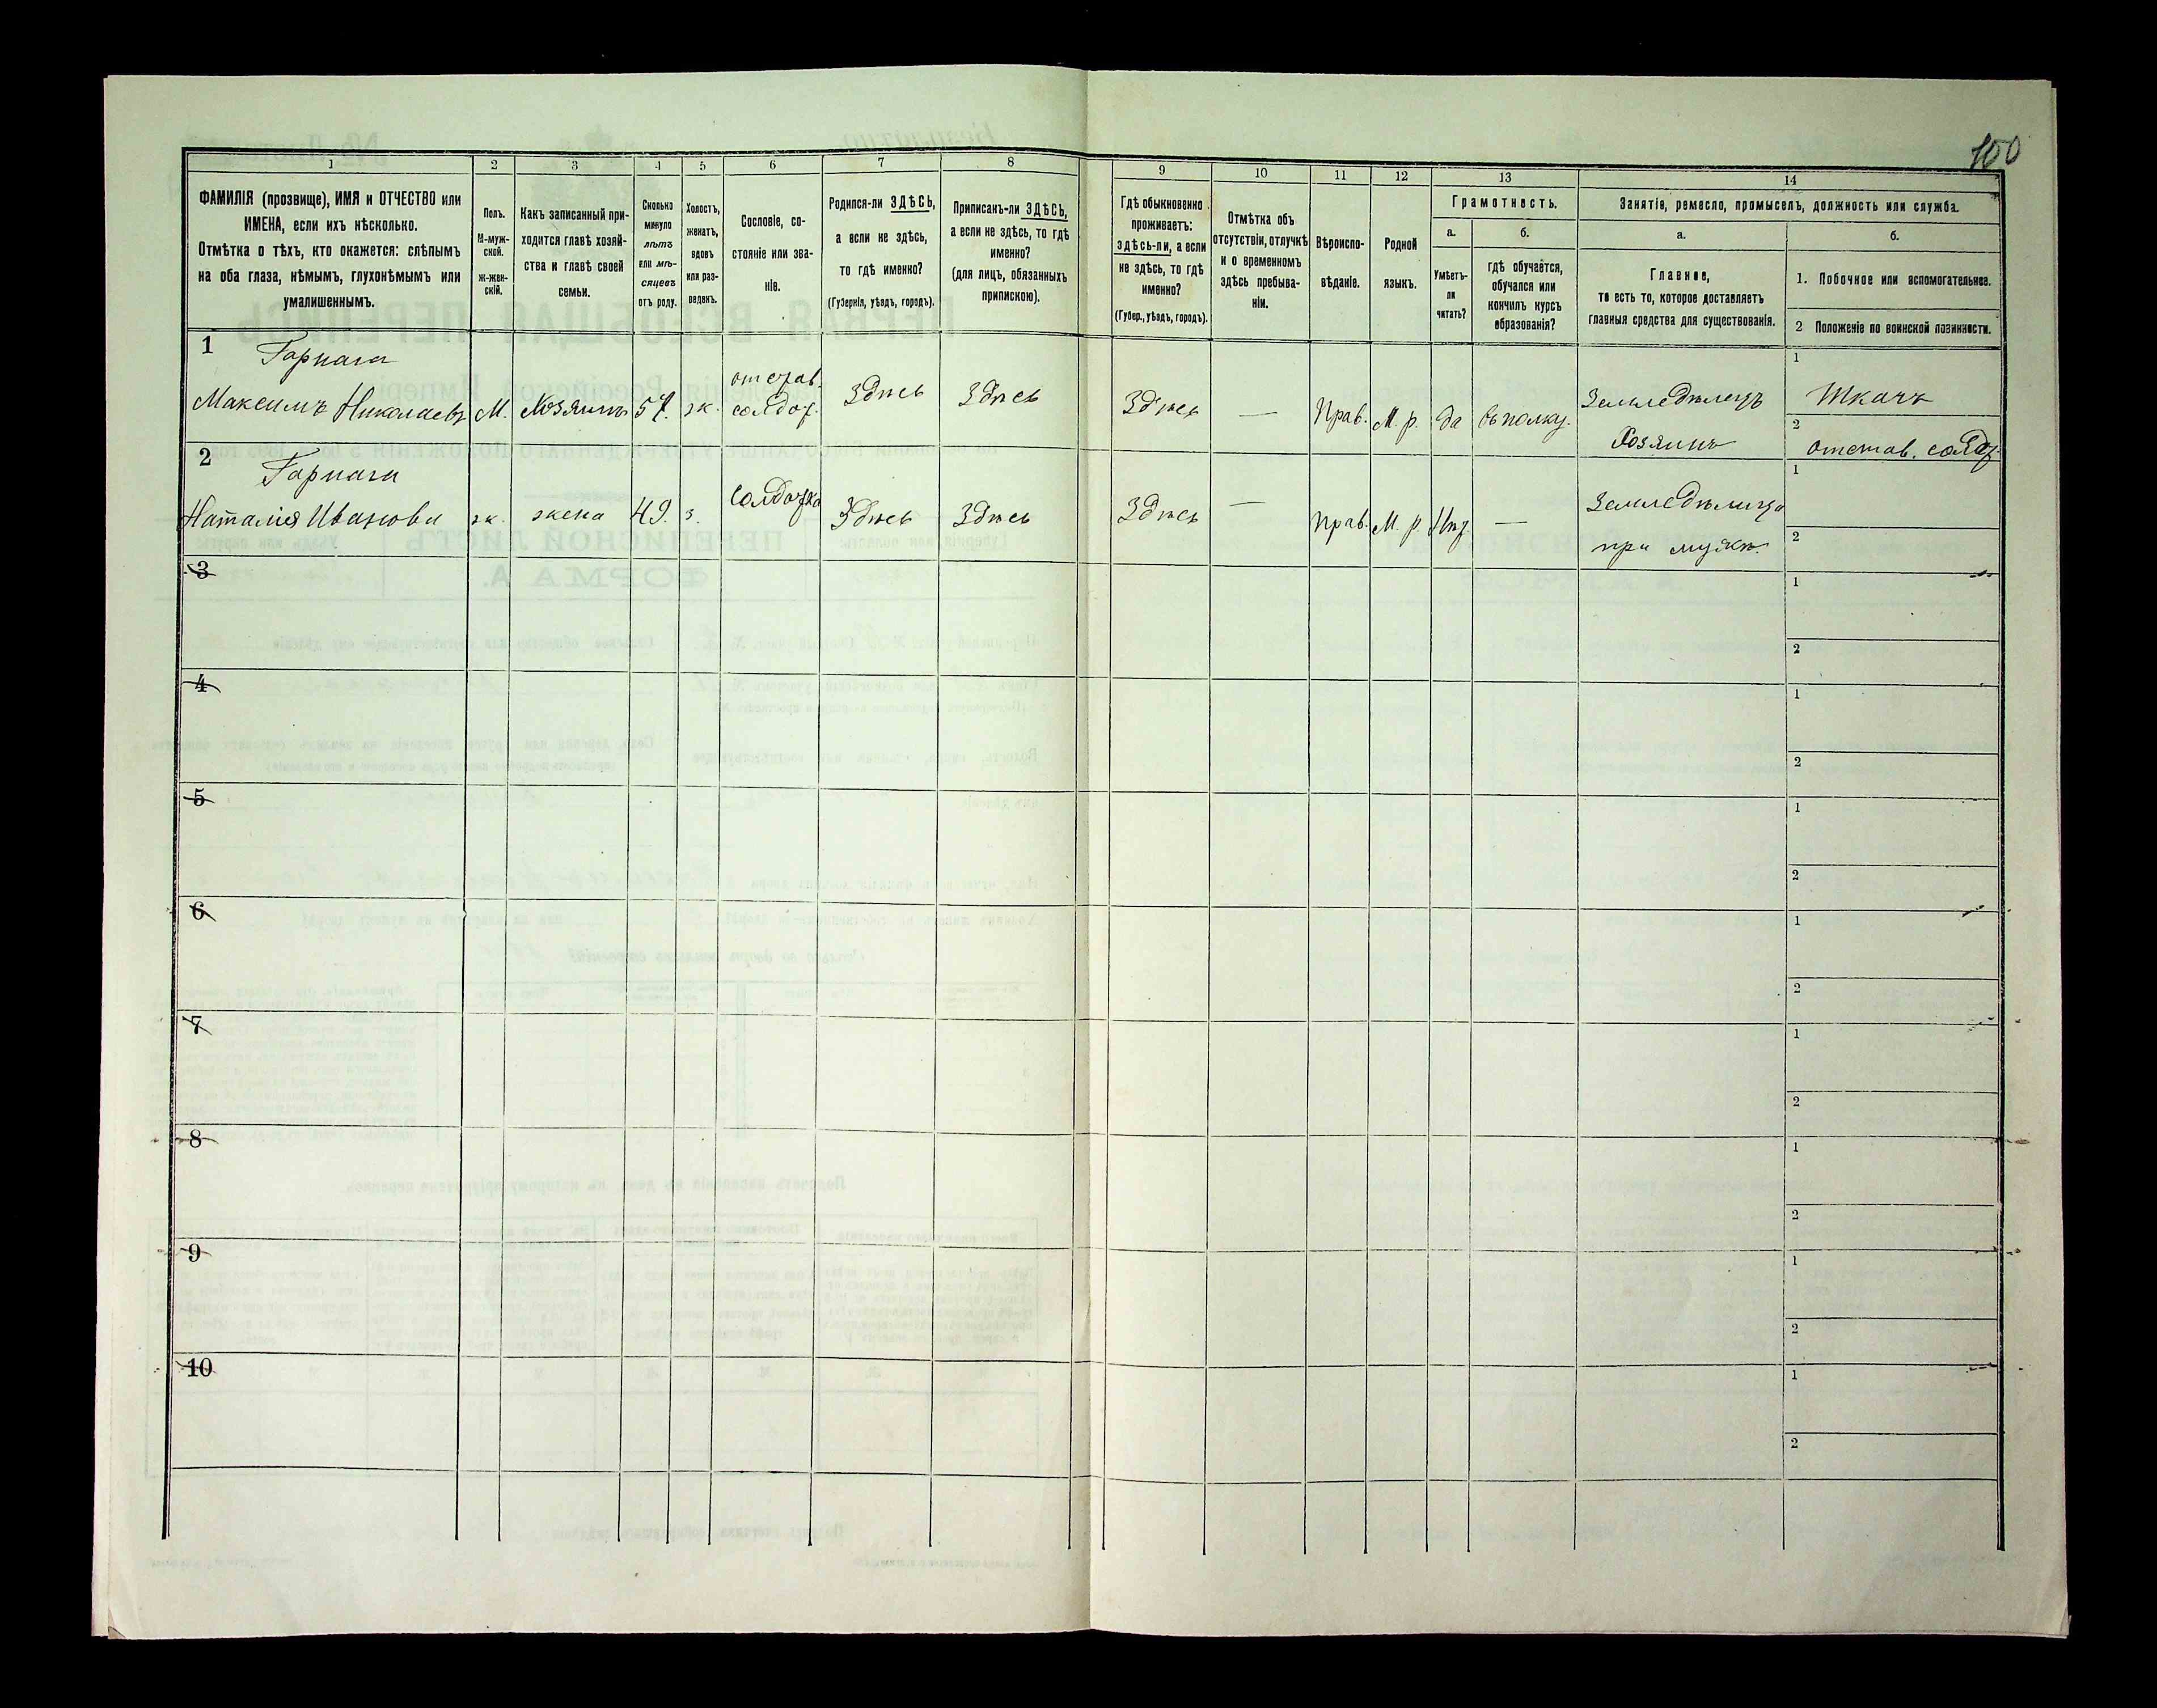 100
1 2 3 4 5 6 7 8 9 10 11 12 13 14
ФАМИЛІЯ (прозвище), ИМЯ и ОТЧЕСТВО или
ИМЕНА, если ихъ нѣсколько.
Отмѣтка о тѣхъ, кто окажется: слѣпымъ
на оба глаза, нѣмымъ, глухонѣмымъ или
умалишеннымъ.
Полъ.
М-муж-
ской.
Ж-жен-
скій.
Какъ записанный при-
ходится главѣ хозяй-
ства и главѣ своей
семьи.
Сколько
минуло
лѣтъ
или мѣ-
сяцевъ
отъ роду.
Холостъ,
женатъ,
вдовъ
или раз-
веденъ.
Сословіе, со-
стояніе или зва-
ніе.
Родился-ли ЗДѢСЬ,
а если не здѣсь,
то гдѣ именно?
(Губернія, уѣздъ, городъ).
Приписанъ-ли ЗДѢСЬ,
а если не здѣсь, то гдѣ
именно?
(для лицъ, обязанныхъ
припискою).
Гдѣ обыкновенно
проживаетъ:
здѣсь-ли, а если
не здѣсь, то гдѣ
именно?
(Губер., уѣздъ, городъ).
Отмѣтка объ
отсутствіи, отлучкѣ
и о временномъ
здѣсь пребыва-
ніи.
Вѣроиспо-
вѣданіе.
Родной
языкъ.
Грамотность.
а.
Умѣетъ-
ли
читать?
б.
гдѣ обучается,
обучался или
кончилъ курсъ
образованія?
Занятіе, ремесло, промыселъ, должность или служба.
а.
Главное,
то есть то, которое доставляетъ
главныя средства для существованія.
б.
1. Побочное или вспомогательное.
2 Положеніе по воинской повинности.
1
Гарнага
Максимъ Николаевъ
М.
Хозяинъ
57.
ж.
отстав.
солдат.
Здѣсь
Здѣсь
Здѣсь
—
Прав.
М. р.
да
въ полку.
Земледѣлецъ
Хозяинъ
1
Ткачъ
2
отстав. солдат
2
Гарнага
Наталія Иванова
ж.
жена
49.
з.
Солдатка
Здѣсь
Здѣсь
Здѣсь
—
Прав.
М. р.
Нѣт
—
Земледѣлица
при мужѣ.
1
2
3
1
2
4
1
2
5
1
2
6
1
2
7
1
2
8
1
2
9
1
2
10
1
2